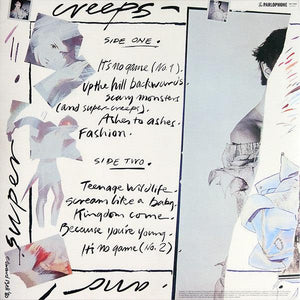 creeps
PARLOPHONE
SIDE ONE.
It's no game (No.1).
Up the hill backwards.
scary monsters
(and super creeps).
Ashes to ashes.
Fashion.
SIDE TWO.
Teenage Wildlife.
scream like a Baby.
Kingdom come.
Because you're young.
It's no game (No. 2)
super
and